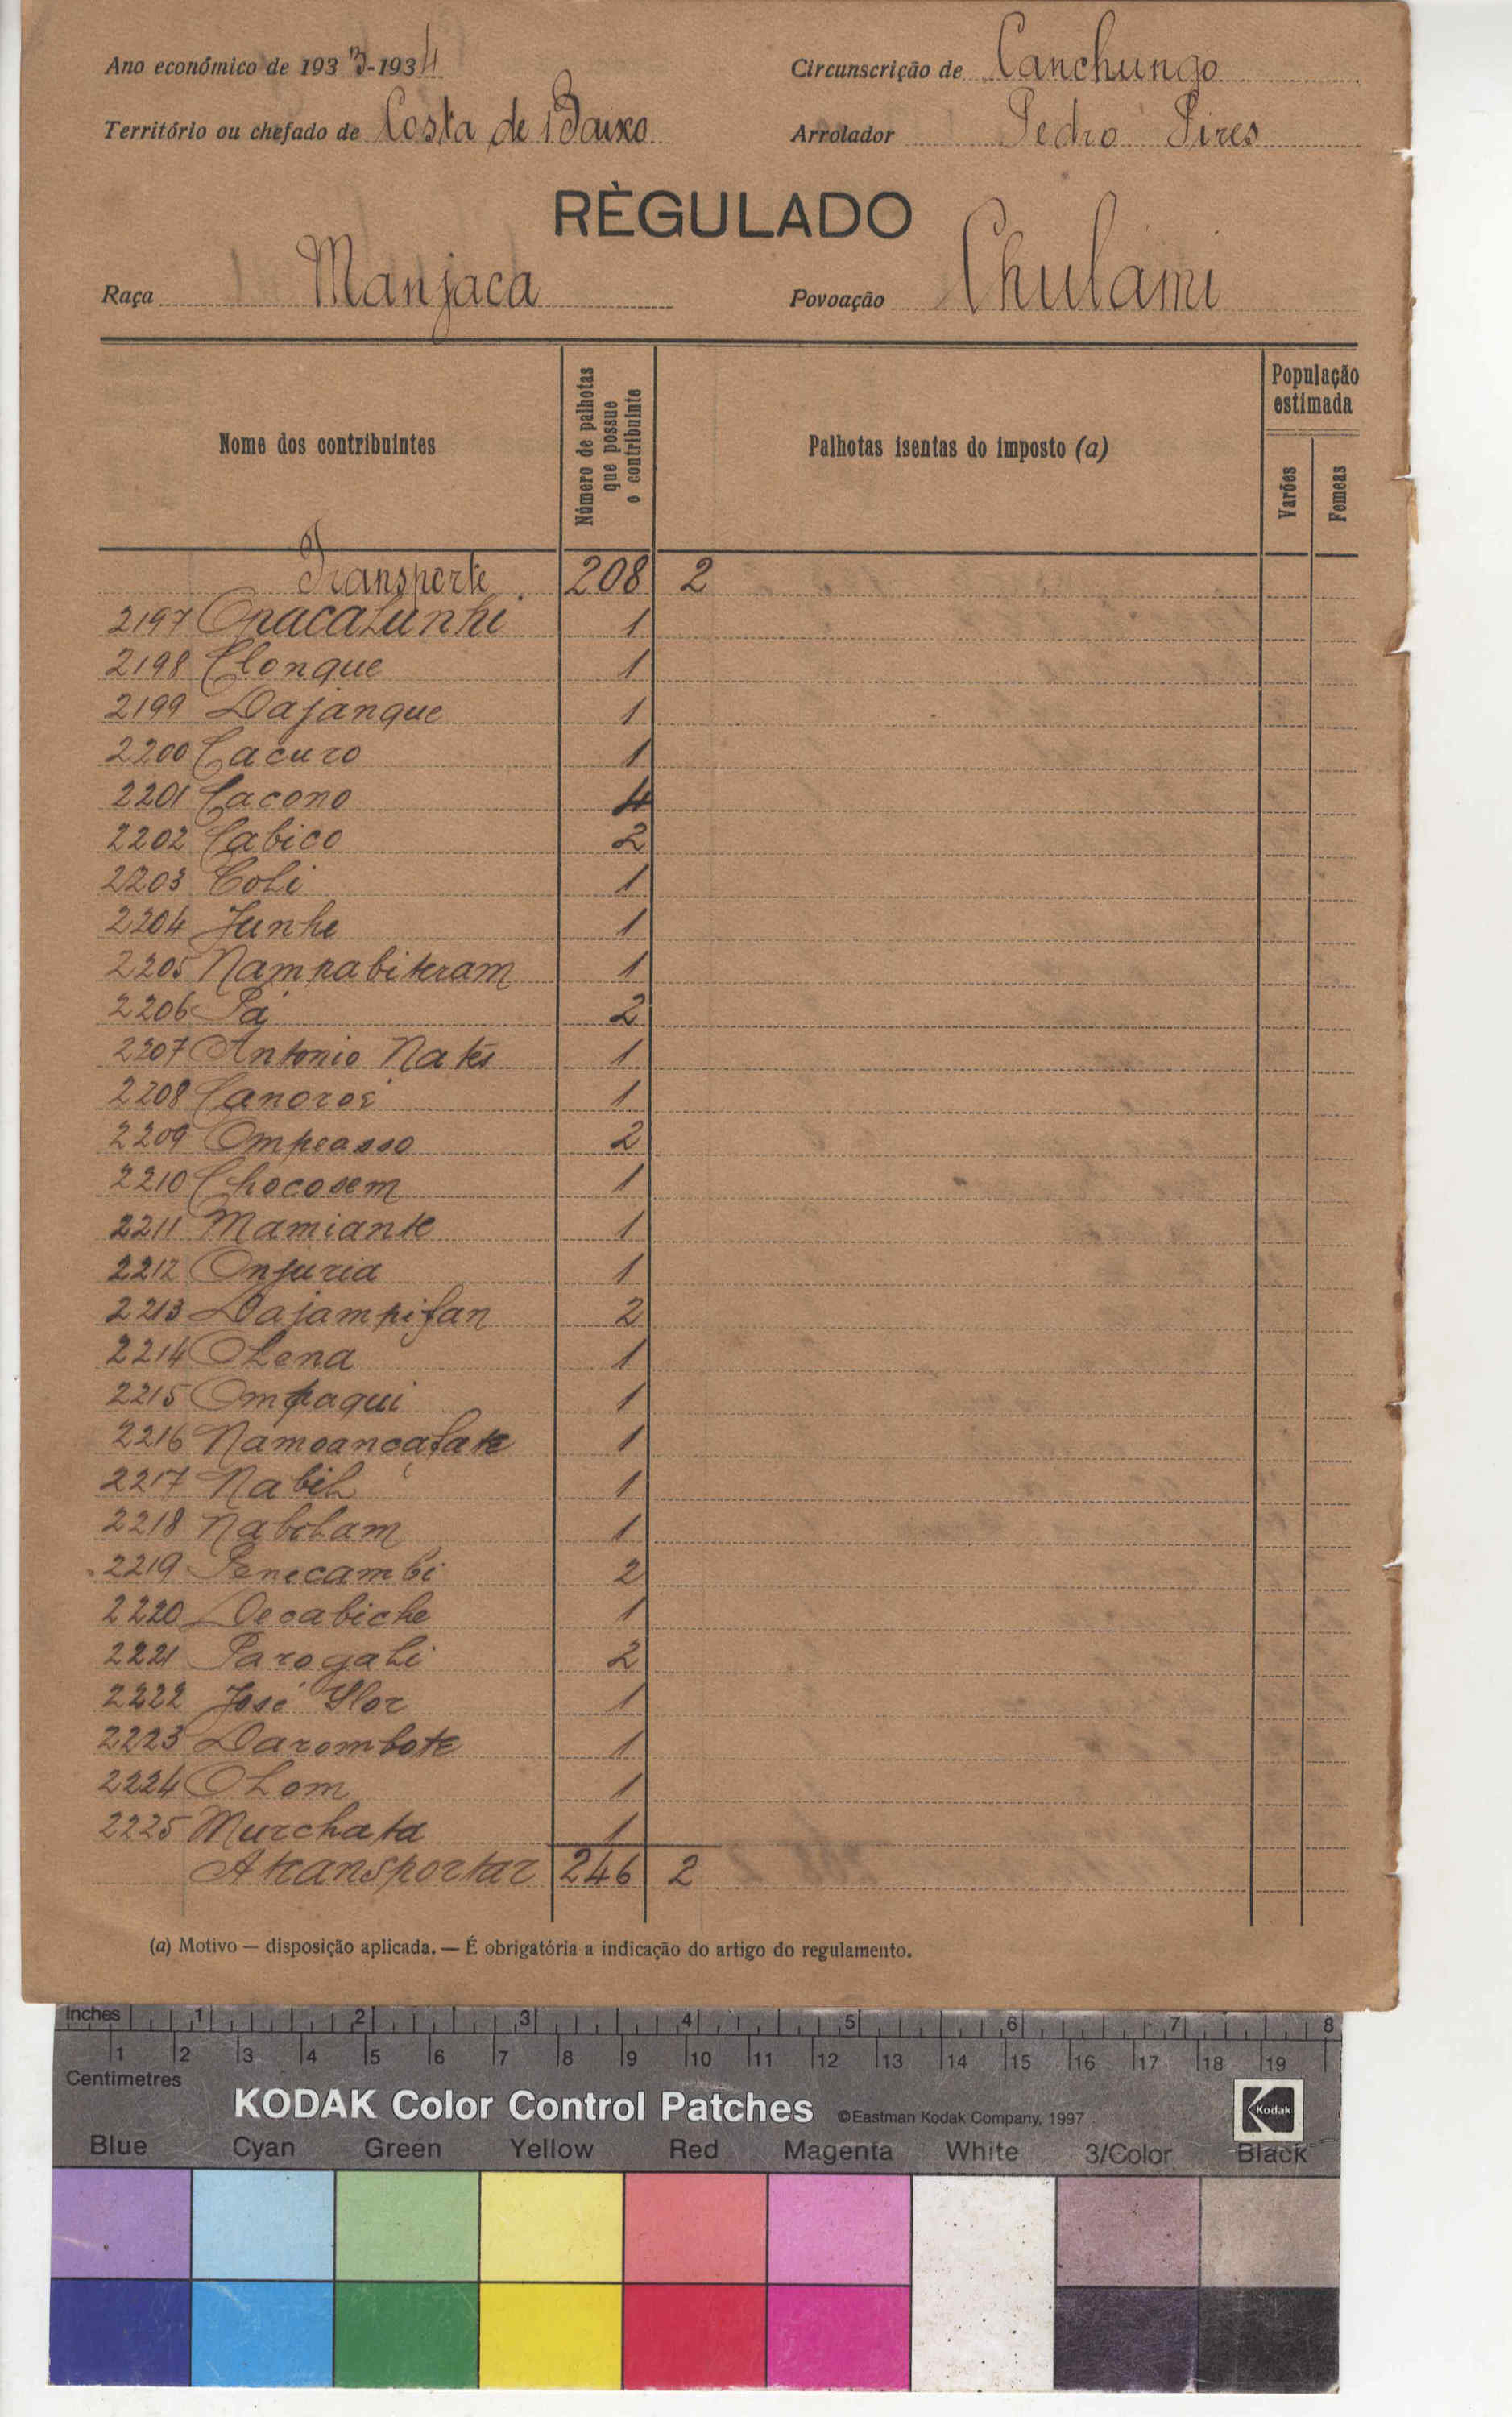 Ano económico de 1933-1934 Circunscrição de Canchungo
Território ou chefado de Costa de Baixo Arrolador Pedro Pires
RÈGULADO
Raça Manjaca Povoação Chulame
Nome dos contribuintes
Número de palhotas que possue o contribuinte
Palhotas isentas do imposto (a)
População estimada
Varões
Femeas
Transporte 208 2
2197 1
2198 Clonque 1
2199 Dajanque 1
2200 Cacuro 1
2201 Cacono 4
2202 Cabico 2
2203 Coli 1
2204 Junhe 1
2205 Nampabiteram 1
2206 Pá 2
2207 Antonio Natés 1
2208 Canoroé 1
2209 Ompeasso 2
2210 Chocosem 1
2211 Mamiante 1
2212 Onjuria 1
2213 Dajampifan 2
2214 Olena 1
2215 Ompaqui 1
2216 Namoancafate 1
2217 Nabil 1
2218 Nabolam 1
2219 Penecambi 2
2220 Decabiche 1
2221 Parogali 2
2222 José Flor 1
2223 Darombote 1
2224 Olom 1
2225 Murchata 1
A transportar 246 2
(a) Motivo — disposição aplicada. — É obrigatória a indicação do artigo do regulamento.
Inches 1 2 3 4 5 6 7 8
1 2 3 4 5 6 7 8 9 10 11 12 13 14 15 16 17 18 19
Centimetres
KODAK Color Control Patches ©Eastman Kodak Company, 1997 Kodak
Blue Cyan Green Yellow Red Magenta White 3/Color Black